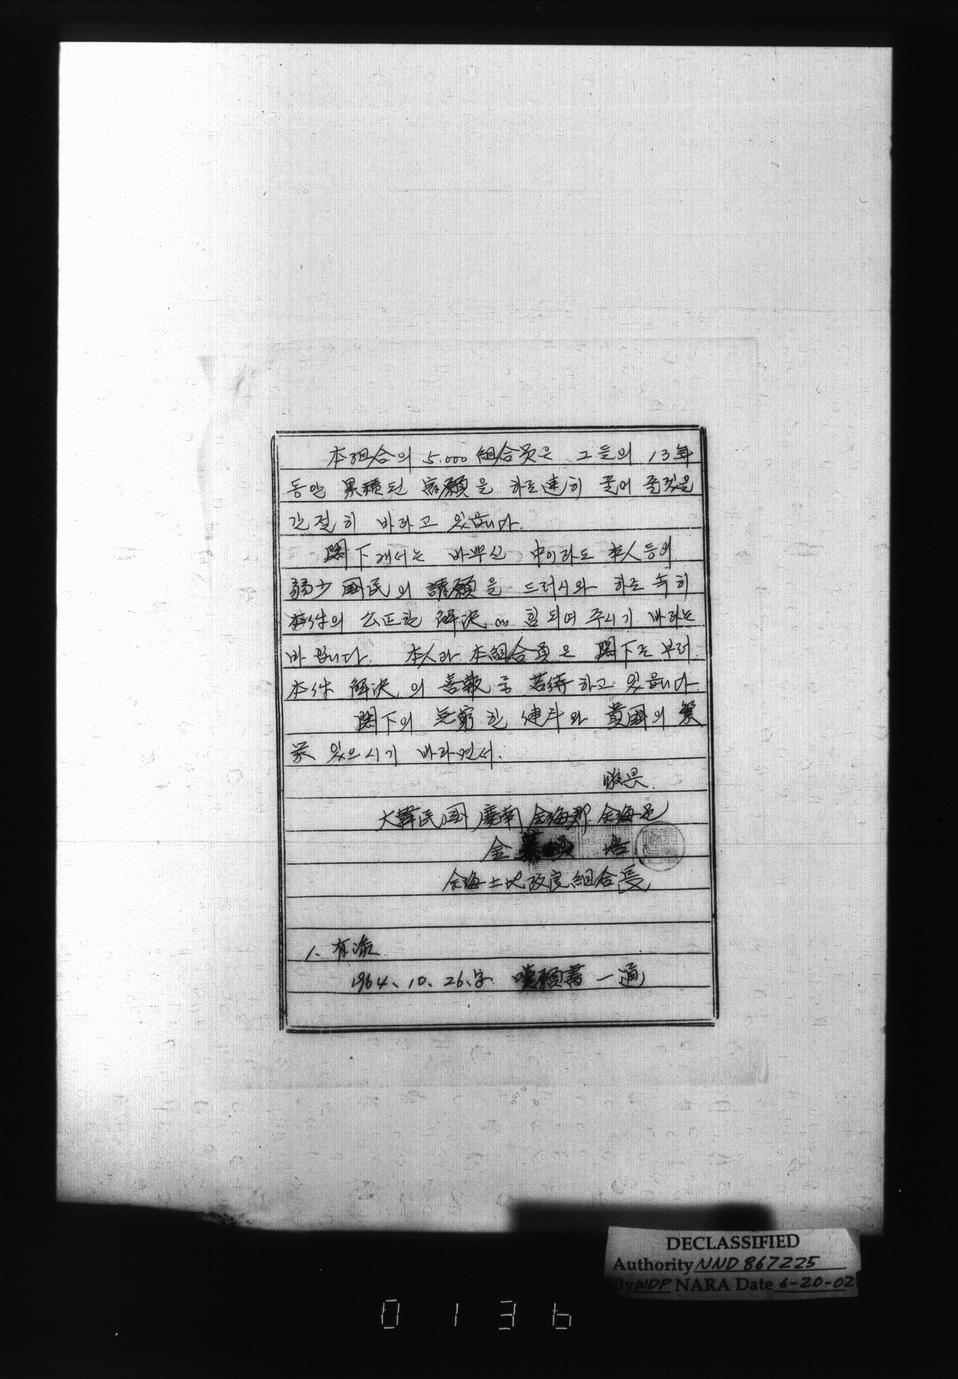 本組合의 5.000 組合员은 그들의 13年
동안 累積된 宿願을 하로速히 풀어 줄것을
간절히 바라고 있읍니다.
閣下께서는 바쁘신 中이라도 本人등의
弱少國民의 請願을 드러시와 하로 속히
本件의 公正한 解決이 되여 주시기 바라는
바 입니다. 本人과 本組合员은 閣下로부터
本件 解決의 喜報를 苦待하고 있읍니다.
閣下의 无窮한 健斗와 貴國의 繁
榮 있으시기 바라면서.
敬具.
大韓民國 慶南 金海郡 金海邑
金
金海土地改良組合長
1. 有添
1964. 10. 26. 字 嘆願書 一通
DECLASSIFIED
Authority NND 867225
By WDP NARA Date 6-20-02
0136